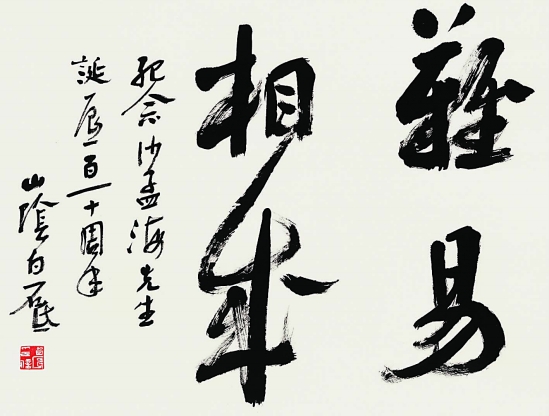 難易
相成
紀念沙孟海先生
誕辰一百一十周年
山陰白砥